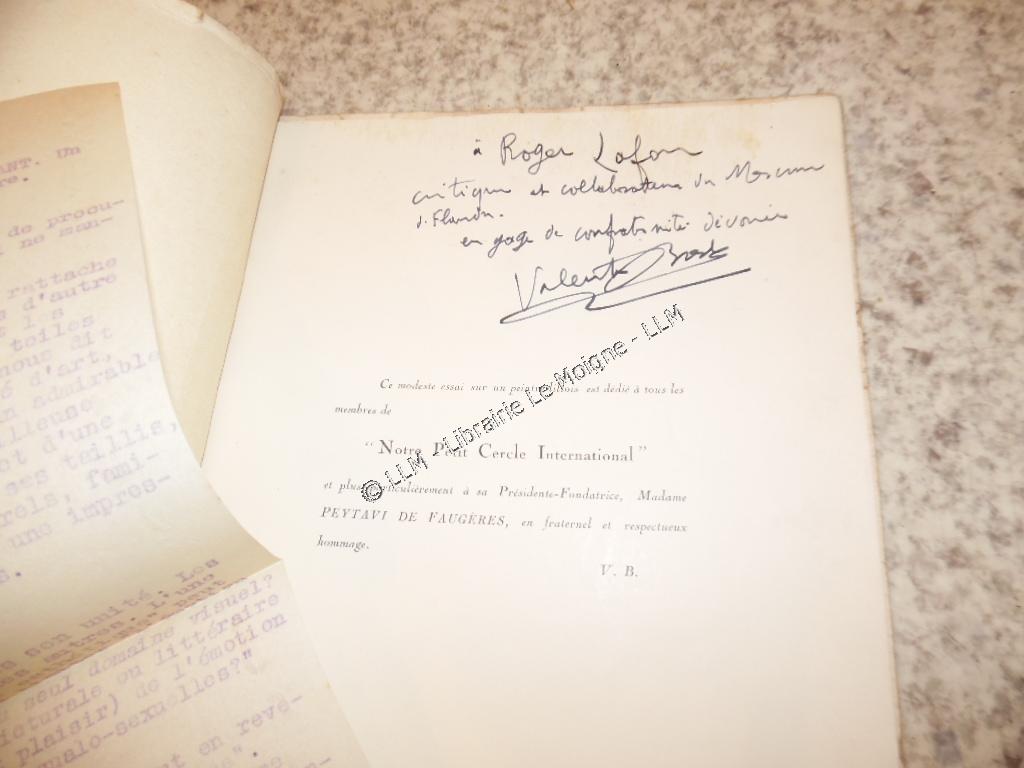 ANT. Un
re.
de procu-
ne man-
rattache
d'autre
les
toiles
nous dit
d'art,
admirable
d'une
ses taillis,
fami-
une impres-
son unité. Les
L'une
seul domaine visuel?
ou littéraire
plaisir) de l'émotion
en revê-
à Roger Lafon
critique et collaborateur du Mercure
d. Flandre.
en gage de confraternité dévouée
Valentin
Ce modeste essai sur un est dédié à tous les
membres de
"Notre Petit Cercle International"
et plus particulièrement à sa Présidente-Fondatrice, Madame
PEYTAVI DE FAUGÈRES, en fraternel et respectueux
hommage.
V. B.
© LLM - Librairie Le Moigne - LLM